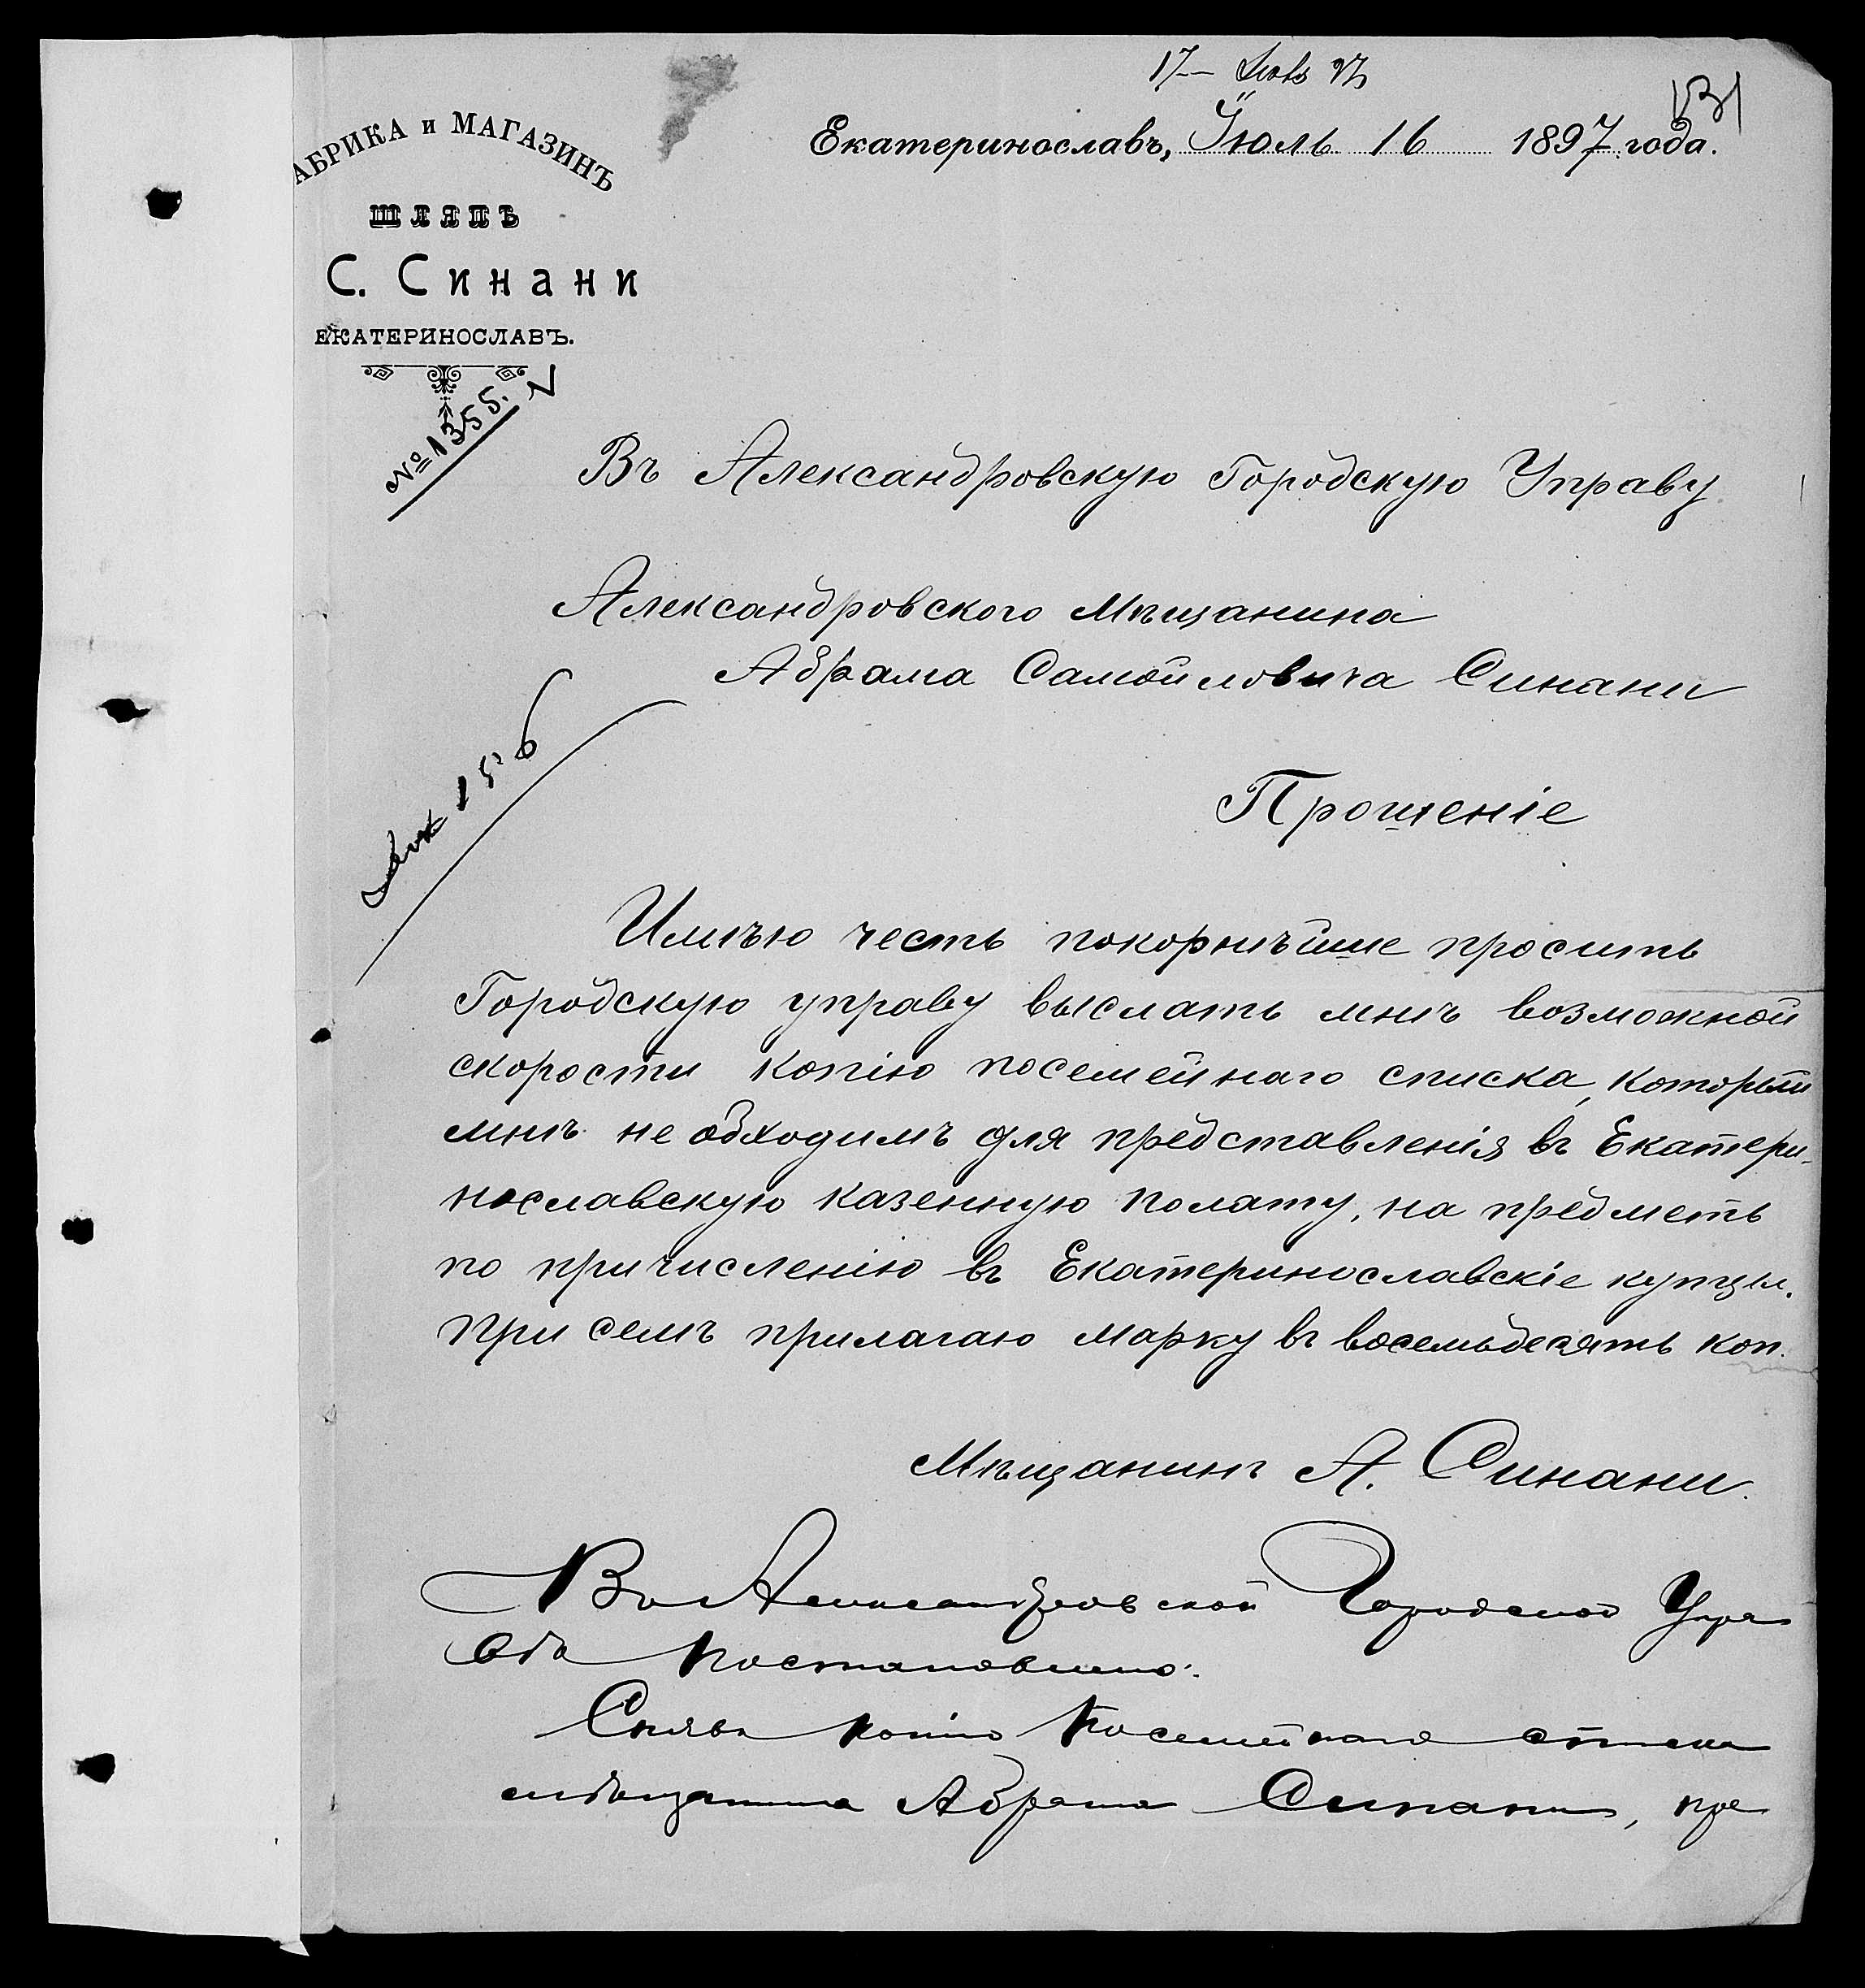 17 Июля 97
131
АБРИКА и МАГАЗИНЪ
ШЛЯПЪ
С. Синани
ЕКАТЕРИНОСЛАВЪ.
Екатеринославъ, Июль 16 1897 года.
№ 1355.
Въ Александровскую Городскую Управу
Александровского Мѣщанина
Абрама Самойловича Синани
156
Прошеніе
Имѣю честь покорнѣйше просить
Городскую управу выслать мнѣ возможной
скорости копію посемейнаго списка, который
мнѣ не обходимъ для представленія въ Екатери-
нославскую казенную полату, на предметь
по причисленію въ Екатеринославскіе купцы.
При семъ прилагаю марку въ восемьдесять коп.
Мѣщанинъ А. Синани.
Въ Александровской Городской Упра
вѣ постановлено:
Снявъ копію посемейнаго списка
мѣщанина Абрама Синани, пре